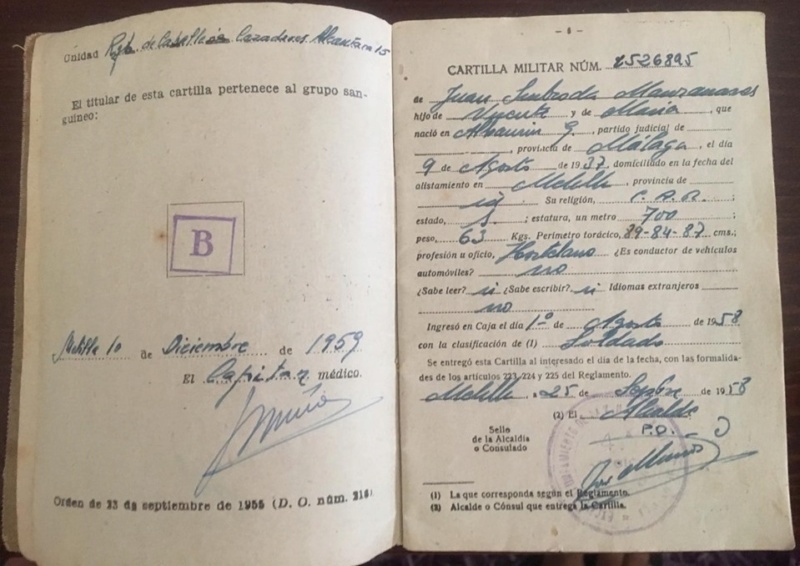 Unidad Rgto de Caballeria Cazadores Alcantara 15
El titular de esta cartilla pertenece al grupo san-
guineo:
B
Melilla 10 de Diciembre de 1959
El Capitan médico.
Orden de 23 de septiembre de 1955 (D. O. núm. 218)
CARTILLA MILITAR NÚM. 1526895
de Juan Imbroda Manzanares
hijo de Vicente y de Maria, que
nació en Alhaurin G., partido judicial de
, provincia de Málaga, el día
9 de Agosto de 1937, domiciliado en la fecha del
alistamiento en Melilla, provincia de
id Su religión, C. A. R. ;
estado, S. ; estatura, un metro 700 ;
peso, 63 Kgs. Perímetro torácico, 79-84-87 cms.;
profesión u oficio, Hortelano ¿Es conductor de vehículos
automóviles? no
¿Sabe leer? si ¿Sabe escribir? si Idiomas extranjeros
no
Ingresó en Caja el día 1º de Agosto de 1958
con la clasificación de (1) Soldado
Se entregó esta Cartilla al interesado el día de la fecha, con las formalida-
des de los artículos 223, 224 y 225 del Reglamento.
Melilla a 25 de Sepbre de 1958
(2) El Alcalde
Sello
de la Alcaldía
o Consulado
P.D.
(1) La que corresponda según el Reglamento.
(2) Alcalde o Cónsul que entrega la Cartilla.